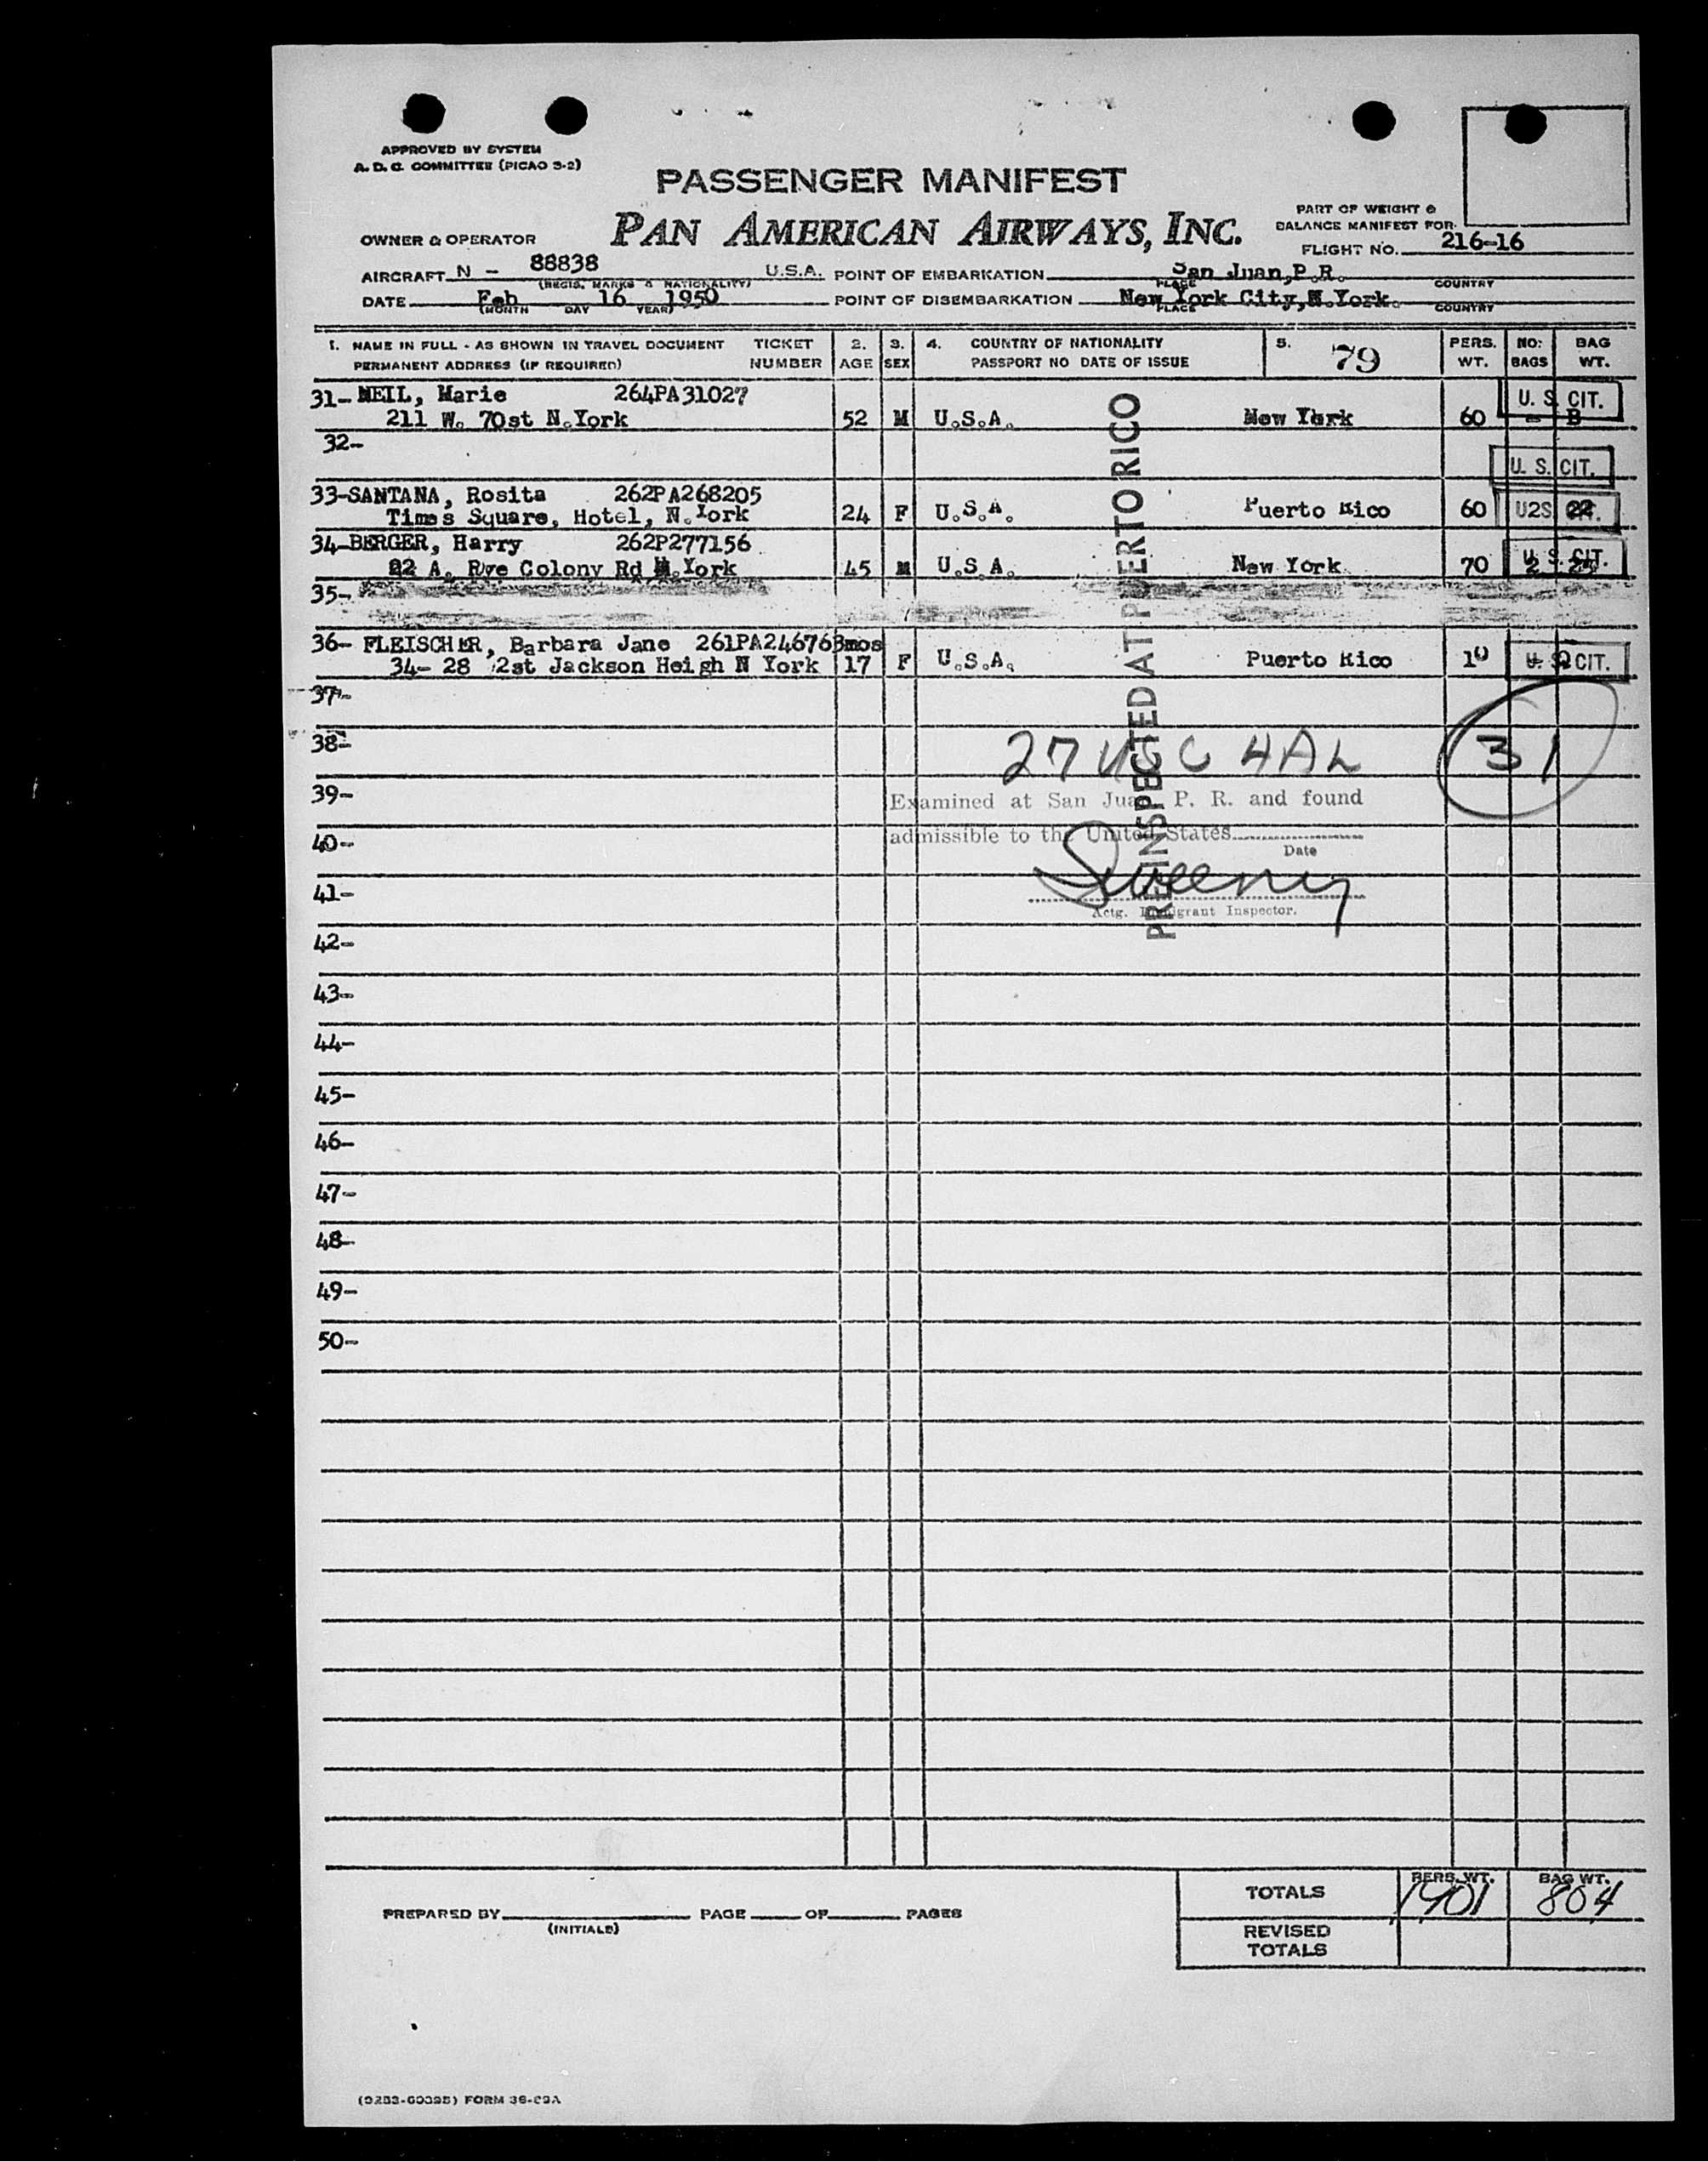 APPROVED BY SYSTEM
A. D. C. COMMITTEE (PICAO S-2)
PASSENGER MANIFEST
PAN AMERICAN AIRWAYS, INC.
PART OF WEIGHT &
BALANCE MANIFEST FOR
OWNER & OPERATOR
FLIGHT NO. 216-16
AIRCRAFT N - 88838 U.S.A. POINT OF EMBARKATION San Juan, P.R.
(REGIS. MARKS & NATIONALITY) PLACE COUNTRY
DATE Feb 16 1950 POINT OF DISEMBARKATION New York City, N.York.
(MONTH DAY YEAR) PLACE COUNTRY
1. NAME IN FULL - AS SHOWN IN TRAVEL DOCUMENT TICKET 2. 3. 4. COUNTRY OF NATIONALITY 5. 79 PERS. NO: BAG
PERMANENT ADDRESS (IF REQUIRED) NUMBER AGE SEX PASSPORT NO DATE OF ISSUE WT. BAGS WT.
31- NEIL, Marie 264PA31027 U. S. CIT.
211 W. 70st N.York 52 M U.S.A. New York 60 - B
32-
U. S. CIT.
33-SANTANA, Rosita 262PA268205
Times Square, Hotel, N.York 24 F U.S.A. Puerto Rico 60 2 22
34-BERGER, Harry 262P277156 U. S. CIT.
22 A. Rye Colony Rd N.York 45 M U.S.A. New York 70 2 25
35-
36- FLEISCHER, Barbara Jane 261PA246763mos
34- 28 2st Jackson Heigh N York 17 F U.S.A. Puerto Rico 10 U. S. CIT.
37-
38-
27 USC 4AL 31
39-
Examined at San Juan, P. R. and found
admissible to the United States
40-
Date
Sweeny
41-
Actg. Immigrant Inspector.
PRE-INSPECTED AT PUERTO RICO
42-
43-
44-
45-
46-
47-
48-
49-
50-
PERS. WT. BAG WT.
TOTALS 1901 804
PREPARED BY PAGE OF PAGES
(INITIALS)
REVISED
TOTALS
FORM 36-